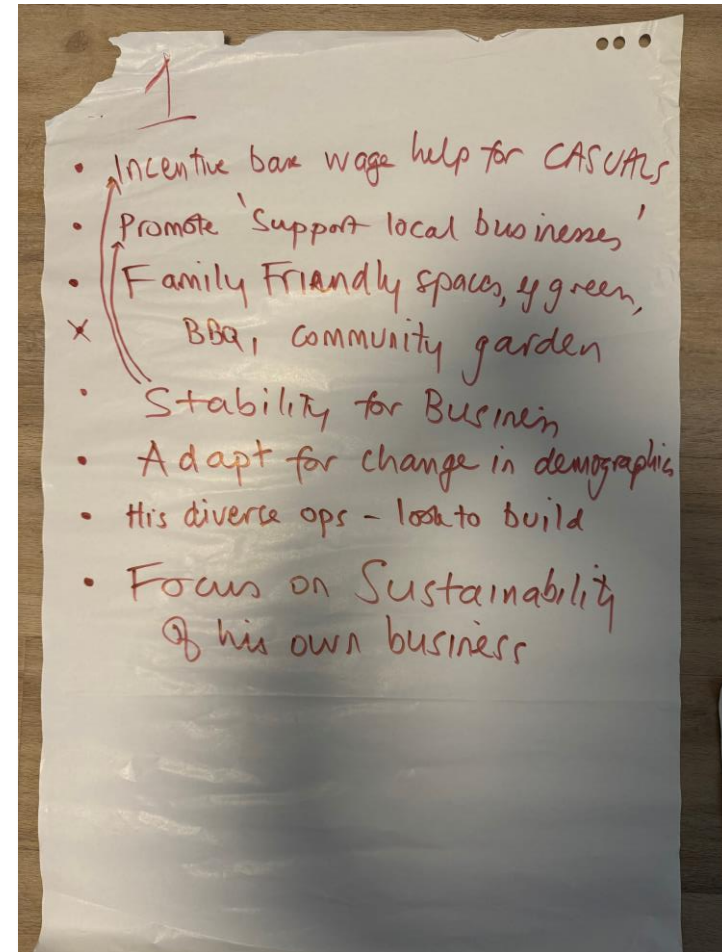 1
• Incentive base wage help for CASUALS
• Promote 'Support local businesses'
• Family Friendly spaces, eg green,
× BBQ, community garden
• Stability for Business
• Adapt for change in demographics
• His diverse ops - look to build
• Focus on Sustainability
of his own business